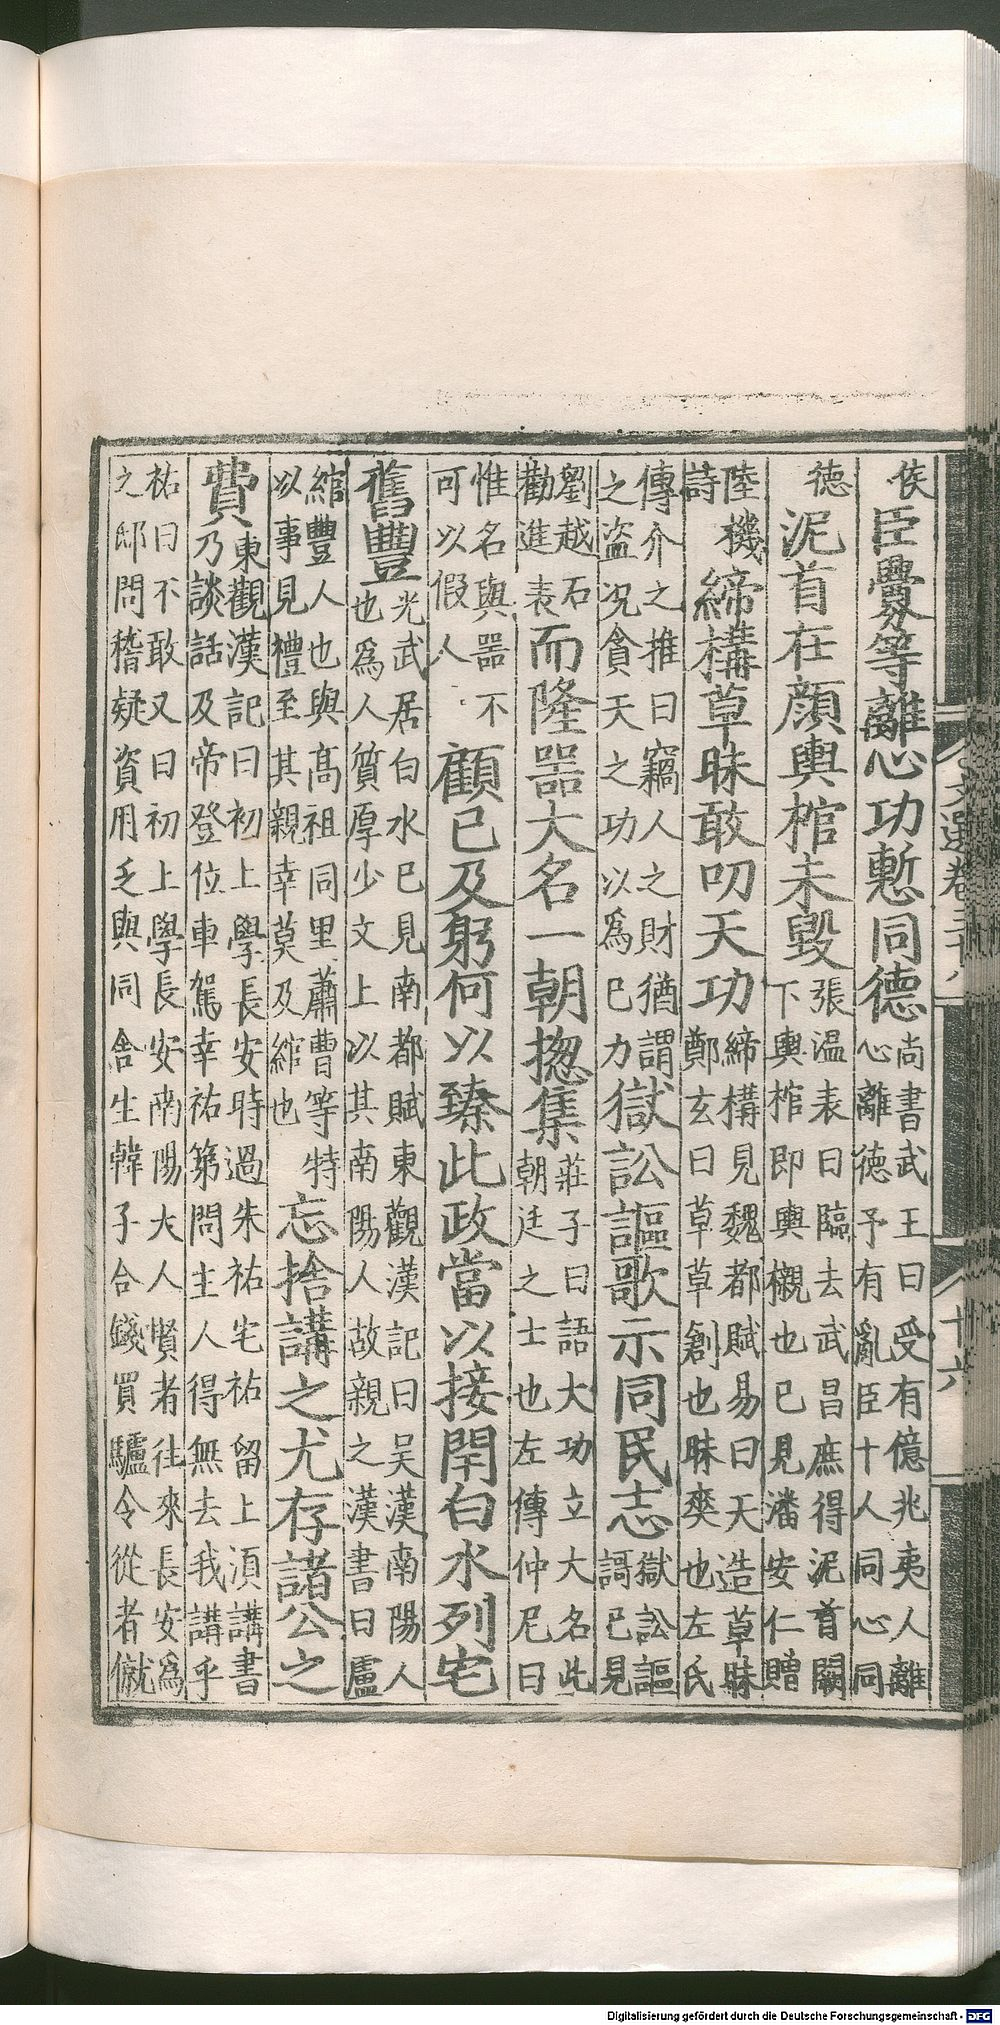 文選卷三十八 十六
侯
臣釁等離心功慙同德
尚書武王曰受有億兆夷人離
心離德予有亂臣十人同心同
德
泥首在顏輿棺未毀
張温表曰臨去武昌庶得泥首闕
下輿棺即輿櫬也已見潘安仁贈
陸機
詩
締構草昧敢叨天功
締構見魏都賦易曰天造草昧
鄭玄曰草草創也昧爽也左氏
傳介之推曰竊人之財猶謂
之盜况貪天之功以爲已力
獄訟謳歌示同民志
獄訟謳
謌已見
劉越石
勸進表
而隆器大名一朝揔集
莊子曰語大功立大名此
朝廷之士也左傳仲尼曰
惟名與器不
可以假人
顧已及躬何以臻此政當以接閈白水列宅
舊豐
光武居白水已見南都賦東觀漢記曰吴漢南陽人
也爲人質厚少文上以其南陽人故親之漢書曰盧
綰豐人也與高祖同里蕭曹等特
以事見禮至其親幸莫及綰也
忘捨講之尤存諸公之
費
東觀漢記曰初上學長安時過朱祐宅祐留上須講書
乃談話及帝登位車駕幸祐第問主人得無去我講乎
祐曰不敢又曰初上學長安南陽大人賢者往來長安爲
之邸問稽疑資用乏與同舍生韓子合錢買驢令從者僦
Digitalisierung gefördert durch die Deutsche Forschungsgemeinschaft - DFG